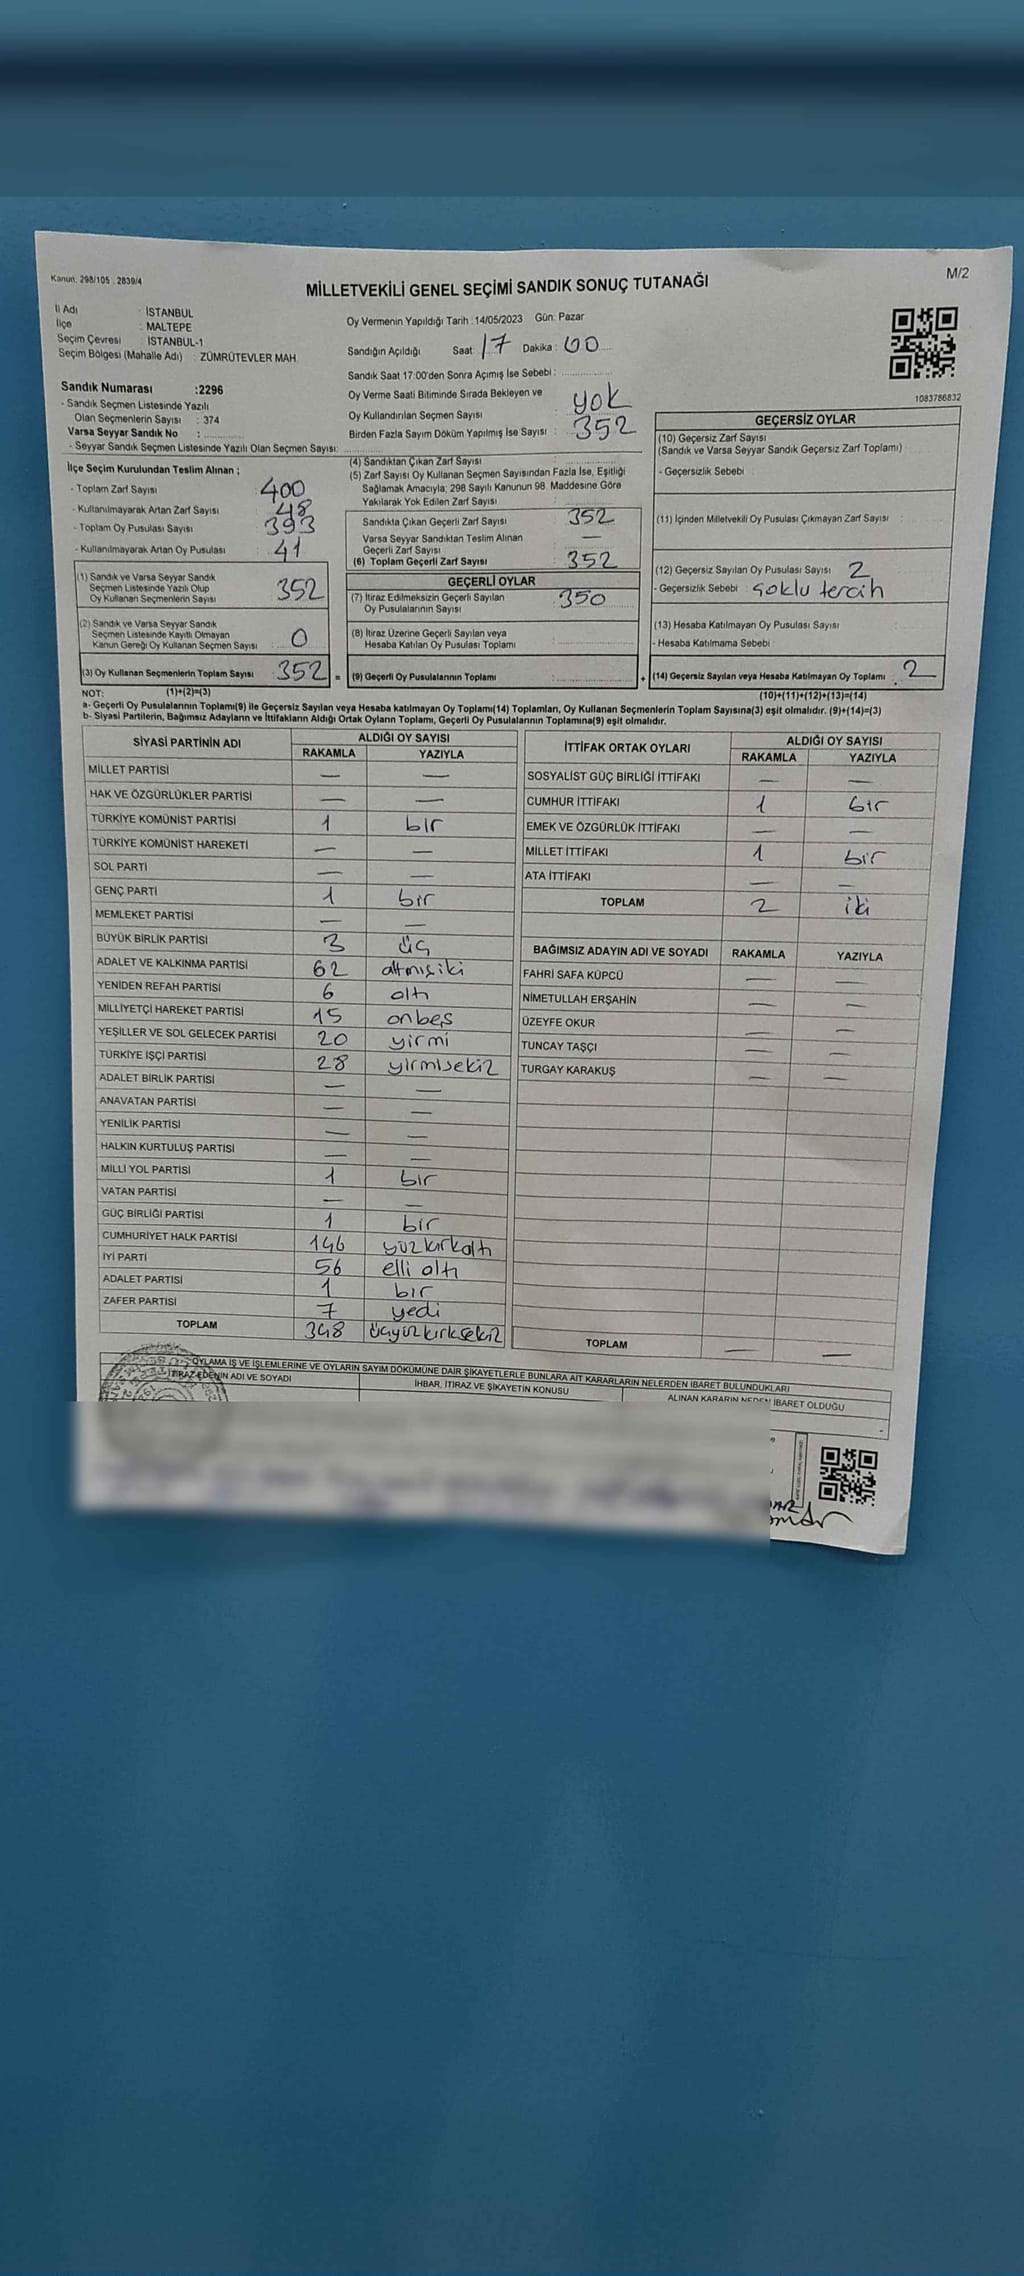 Kanun: 298/105 , 2839/4
M/2
MİLLETVEKİLİ GENEL SEÇİMİ SANDIK SONUÇ TUTANAĞI
İl Adı : İSTANBUL
İlçe : MALTEPE
Seçim Çevresi : İSTANBUL-1
Seçim Bölgesi (Mahalle Adı) : ZÜMRÜTEVLER MAH.
Sandık Numarası :2296
- Sandık Seçmen Listesinde Yazılı
Olan Seçmenlerin Sayısı : 374
Varsa Seyyar Sandık No :
- Seyyar Sandık Seçmen Listesinde Yazılı Olan Seçmen Sayısı:
Oy Vermenin Yapıldığı Tarih :14/05/2023 Gün: Pazar
Sandığın Açıldığı Saat 17 Dakika : 00
Sandık Saat 17:00'den Sonra Açımış İse Sebebi :
Oy Verme Saati Bitiminde Sırada Bekleyen ve
Oy Kullandırılan Seçmen Sayısı : yok
Birden Fazla Sayım Döküm Yapılmış İse Sayısı : 352
1083786832
İlçe Seçim Kurulundan Teslim Alınan ;
- Toplam Zarf Sayısı : 400
- Kullanılmayarak Artan Zarf Sayısı : 48
- Toplam Oy Pusulası Sayısı : 393
- Kullanılmayarak Artan Oy Pusulası : 41
(1) Sandık ve Varsa Seyyar Sandık
Seçmen Listesinde Yazılı Olup
Oy Kullanan Seçmenlerin Sayısı : 352
(2) Sandık ve Varsa Seyyar Sandık
Seçmen Listesinde Kayıtlı Olmayan
Kanun Gereği Oy Kullanan Seçmen Sayısı : 0
(3) Oy Kullanan Seçmenlerin Toplam Sayısı : 352 =
(4) Sandıktan Çıkan Zarf Sayısı :
(5) Zarf Sayısı Oy Kullanan Seçmen Sayısından Fazla İse, Eşitliği
Sağlamak Amacıyla; 298 Sayılı Kanunun 98. Maddesine Göre
Yakılarak Yok Edilen Zarf Sayısı :
Sandıkta Çıkan Geçerli Zarf Sayısı : 352
Varsa Seyyar Sandıktan Teslim Alınan
Geçerli Zarf Sayısı : —
(6) Toplam Geçerli Zarf Sayısı : 352
GEÇERLİ OYLAR
(7) İtiraz Edilmeksizin Geçerli Sayılan
Oy Pusulalarının Sayısı : 350
(8) İtiraz Üzerine Geçerli Sayılan veya
Hesaba Katılan Oy Pusulası Toplamı :
(9) Geçerli Oy Pusulalarının Toplamı : +
GEÇERSİZ OYLAR
(10) Geçersiz Zarf Sayısı
(Sandık ve Varsa Seyyar Sandık Geçersiz Zarf Toplamı) :
- Geçersizlik Sebebi :
(11) İçinden Milletvekili Oy Pusulası Çıkmayan Zarf Sayısı :
(12) Geçersiz Sayılan Oy Pusulası Sayısı : 2
- Geçersizlik Sebebi : çoklu tercih
(13) Hesaba Katılmayan Oy Pusulası Sayısı :
- Hesaba Katılmama Sebebi :
(14) Geçersiz Sayılan veya Hesaba Katılmayan Oy Toplamı : 2
NOT: (1)+(2)=(3)
(10)+(11)+(12)+(13)=(14)
a- Geçerli Oy Pusulalarının Toplamı(9) ile Geçersiz Sayılan veya Hesaba katılmayan Oy Toplamı(14) Toplamları, Oy Kullanan Seçmenlerin Toplam Sayısına(3) eşit olmalıdır. (9)+(14)=(3)
b- Siyasi Partilerin, Bağımsız Adayların ve İttifakların Aldığı Ortak Oyların Toplamı, Geçerli Oy Pusulalarının Toplamına(9) eşit olmalıdır.
SİYASİ PARTİNİN ADI ALDIĞI OY SAYISI
RAKAMLA YAZIYLA
MİLLET PARTİSİ — —
HAK VE ÖZGÜRLÜKLER PARTİSİ — —
TÜRKİYE KOMÜNİST PARTİSİ 1 bir
TÜRKİYE KOMÜNİST HAREKETİ — —
SOL PARTİ — —
GENÇ PARTİ 1 bir
MEMLEKET PARTİSİ — —
BÜYÜK BİRLİK PARTİSİ 3 üç
ADALET VE KALKINMA PARTİSİ 62 altmışiki
YENİDEN REFAH PARTİSİ 6 altı
MİLLİYETÇİ HAREKET PARTİSİ 15 onbeş
YEŞİLLER VE SOL GELECEK PARTİSİ 20 yirmi
TÜRKİYE İŞÇİ PARTİSİ 28 yirmisekiz
ADALET BİRLİK PARTİSİ — —
ANAVATAN PARTİSİ — —
YENİLİK PARTİSİ — —
HALKIN KURTULUŞ PARTİSİ — —
MİLLİ YOL PARTİSİ 1 bir
VATAN PARTİSİ — —
GÜÇ BİRLİĞİ PARTİSİ 1 bir
CUMHURİYET HALK PARTİSİ 146 yüzkırkaltı
İYİ PARTİ 56 elli altı
ADALET PARTİSİ 1 bir
ZAFER PARTİSİ 7 yedi
TOPLAM 348 üçyüzkırksekiz
İTTİFAK ORTAK OYLARI ALDIĞI OY SAYISI
RAKAMLA YAZIYLA
SOSYALİST GÜÇ BİRLİĞİ İTTİFAKI — —
CUMHUR İTTİFAKI 1 bir
EMEK VE ÖZGÜRLÜK İTTİFAKI — —
MİLLET İTTİFAKI 1 bir
ATA İTTİFAKI — —
TOPLAM 2 iki
BAĞIMSIZ ADAYIN ADI VE SOYADI RAKAMLA YAZIYLA
FAHRİ SAFA KÜPCÜ — —
NİMETULLAH ERŞAHİN — —
ÜZEYFE OKUR — —
TUNCAY TAŞÇI — —
TURGAY KARAKUŞ — —
TOPLAM — —
OYLAMA İŞ VE İŞLEMLERİNE VE OYLARIN SAYIM DÖKÜMÜNE DAİR ŞİKAYETLERLE BUNLARA AİT KARARLARIN NELERDEN İBARET BULUNDUKLARI
İTİRAZ EDENİN ADI VE SOYADI İHBAR, İTİRAZ VE ŞİKAYETİN KONUSU ALINAN KARARIN NEDEN İBARET OLDUĞU